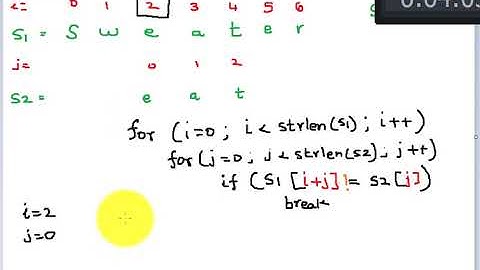 0 1 2 3 4 5 6
S1 = S w e a t e r
j= 0 1 2
S2 = e a t
for (i=0 ; i < strlen(s1) ; i++)
for (j=0 ; j < strlen(s2) ; j++)
if (S1 [i+j] != S2 [j])
break
i=2
j=0